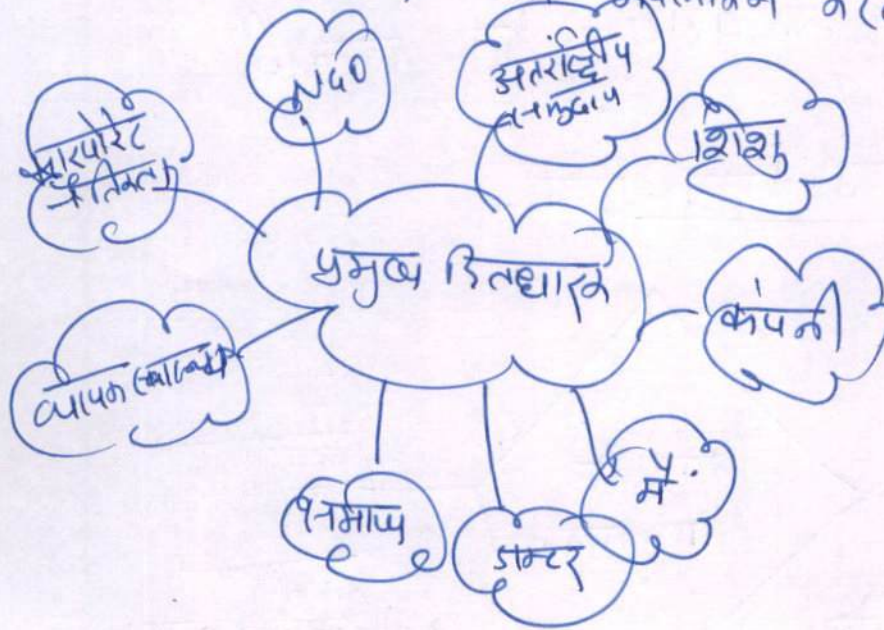 NGO
अंतर्राष्ट्रीय
समुदाय
शिशु
कारपोरेट
नैतिकता
प्रमुख हितधारक
कंपनी
व्यापक
समाज
डाक्टर
मैं